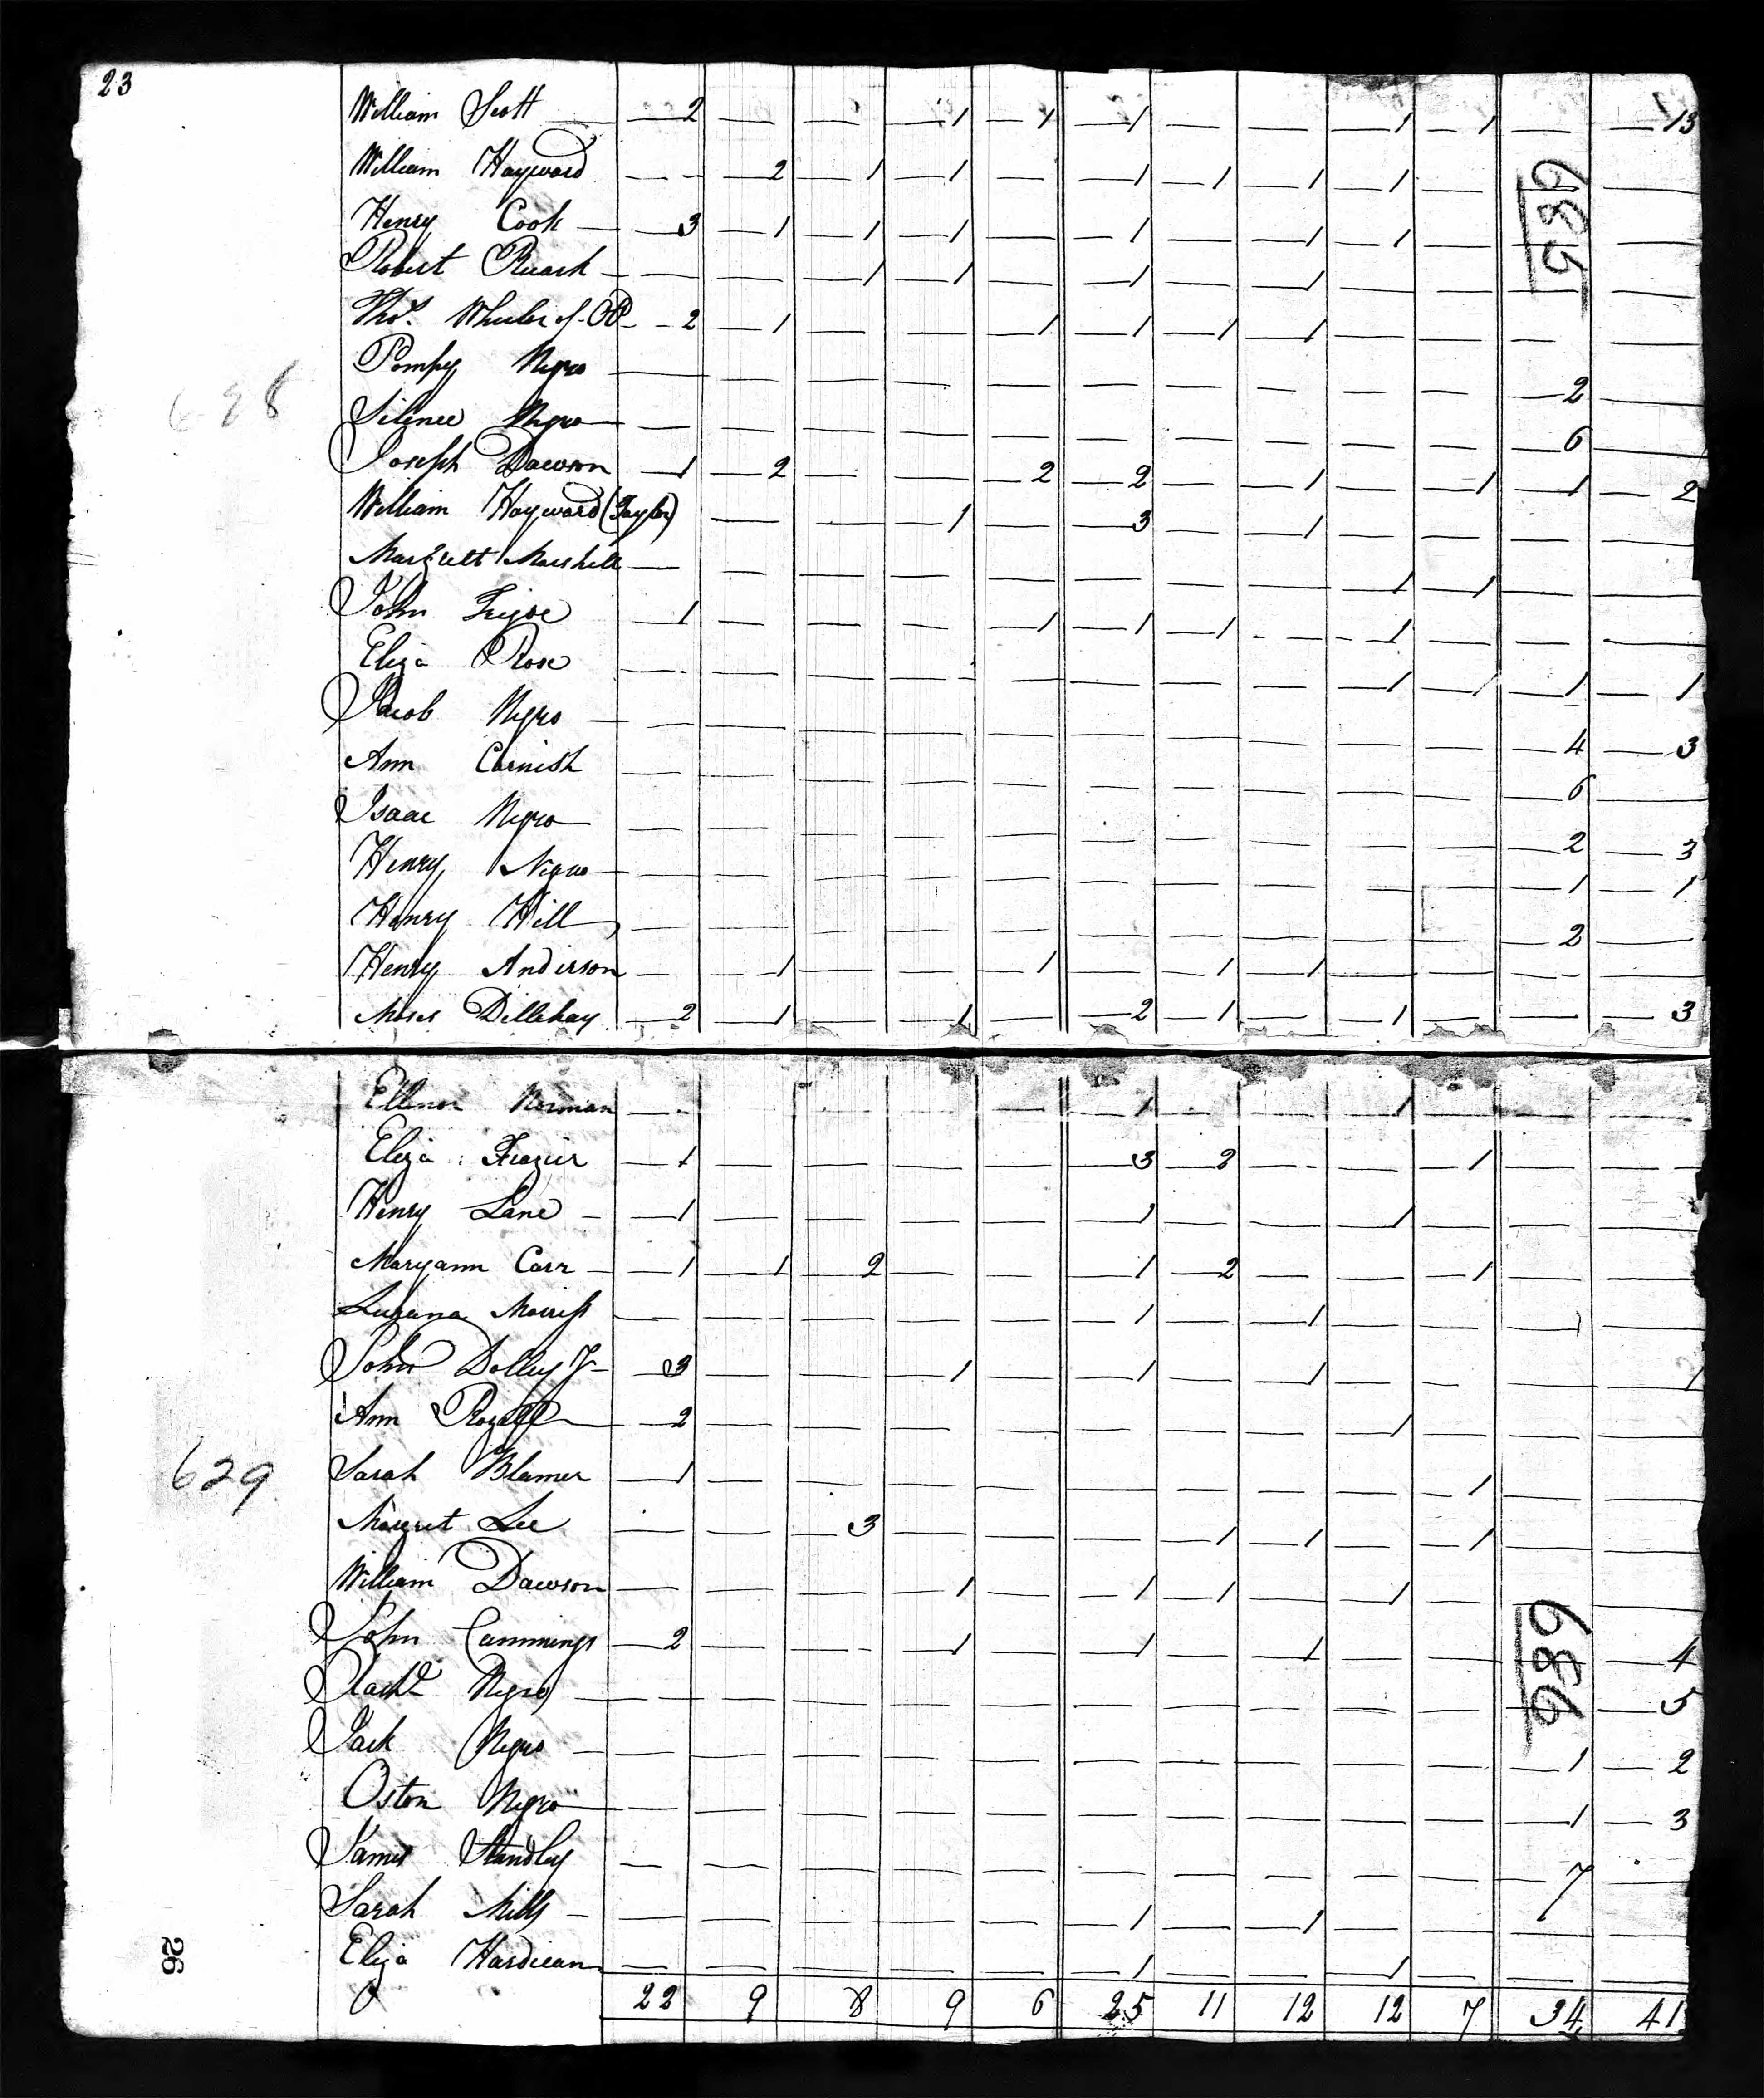 23
William Scott — 2 — — 1 1 1 — — 1 1 — 13
William Hayward — 2 1 1 — 1 1 1 1 — — —
Henry Cook — 3 1 1 1 — 1 — 1 1 — — —
Robert Ruark — — — 1 1 — 1 — 1 — — — —
Thos. Wheeler of — 2 1 — — 1 1 1 1 — — — —
Pompy Negro — — — — — — — — — — — 2 —
628
Silence Negro — — — — — — — — — — — 6 —
Joseph Dawson 1 2 — — 2 2 — 1 — 1 1 2
William Hayward (Taylor) — — 1 — 3 — 1 — — — —
Margrett Marshell — — — — — — — — 1 1 — —
John 1 — — — 1 1 1 — 1 — — —
Eliza Rose — — — — — — — — 1 1 1 1
Jacob Negro — — — — — — — — — — — 4 3
Ann Cornish — — — — — — — — — — 6 —
Isaac Negro — — — — — — — — — — 2 3
Henry Negro — — — — — — — — — — — 1 1
Henry Hill — — — — — — — — — — 2 —
Henry Anderson — 1 — — 1 — 1 1 — — — —
Moses Dillehay 2 1 — 1 — 2 1 — 1 — — 3
685
Ellenor Norman — — — — — 1 — — 1 — — —
Eliza Frazier 1 — — — — 3 2 — — 1 — —
Henry Lane — 1 — — — — 1 — — 1 — — —
Maryann Carr — 1 1 2 — — 1 2 — — 1 — —
Morriss — — — — — 1 — 1 — — 1 —
John Dolley Jr — 3 — — 1 — 1 — 1 — — — 1
Ann — 2 — — — — — — — 1 — — —
Sarah Blamer 1 — — — — — — — — 1 — —
629
Margret Lee — — 3 — — — 1 1 — 1 — —
William Dawson — — — 1 — 1 1 — 1 — — —
John Cummings 2 — — 1 — 1 — 1 — — — 4
Rachl Negro — — — — — — — — — — — 5
Jack Negro — — — — — — — — — — — 1 2
Oston Negro — — — — — — — — — — — 1 3
James Standley — — — — — — — — — — 7
Sarah Mills — — — — — — 1 — 1 — — — —
Eliza — — — — — 1 — — 1 — — —
686
26
22 9 8 9 6 25 11 12 12 7 34 41